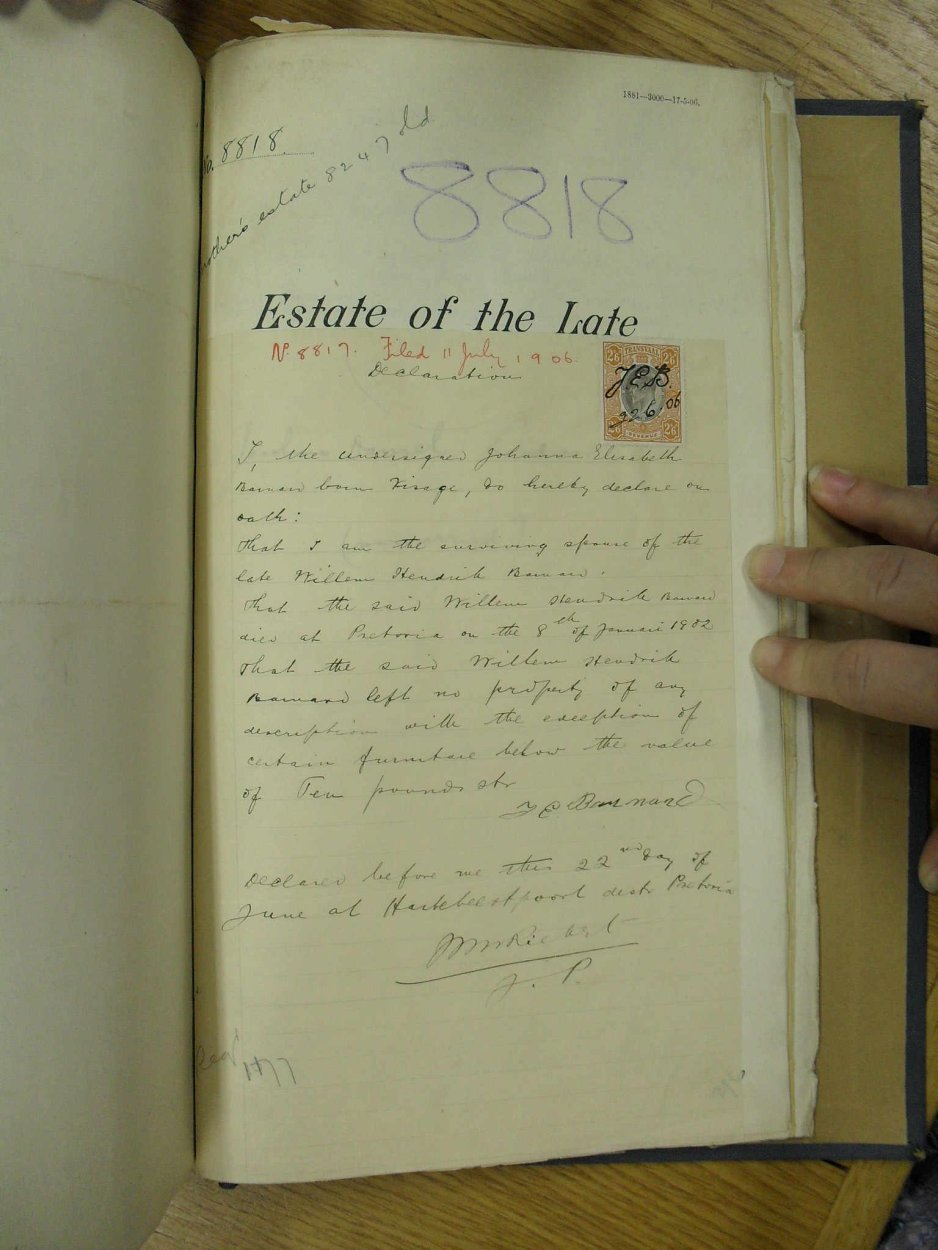 1881—3000—17-5-06.
No. 8818.
mother's estate 8247 old
8818
Estate of the Late
No. 8817. Filed 11 July 1906.
Declaration
TRANSVAAL
2/6 2/6
J.E.B.
22 6 06
2/6 2/6
REVENUE
I, the undersigned Johanna Elisabeth
Barnard born Visage, do hereby declare on
oath:
That I am the surviving spouse of the
late Willem Hendrik Barnard.
That the said Willem Hendrik Barnard
died at Pretoria on the 8th of Januari 1902
That the said Willem Hendrik
Barnard left no property of any
description with the exception of
certain furniture below the value
of Ten pounds str
J E Barnard
Declared before me this 22nd day of
June at Hartebeestpoort distr Pretoria
J. P.